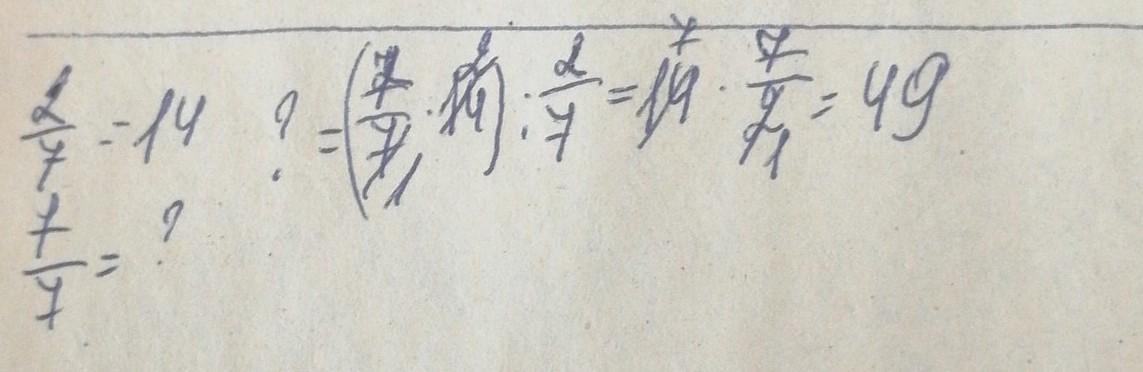 2/7 = 14 ? = (7/7 1 · 14 2) : 2/7 = 14 7 · 7/2 1 = 49
7/7 = ?